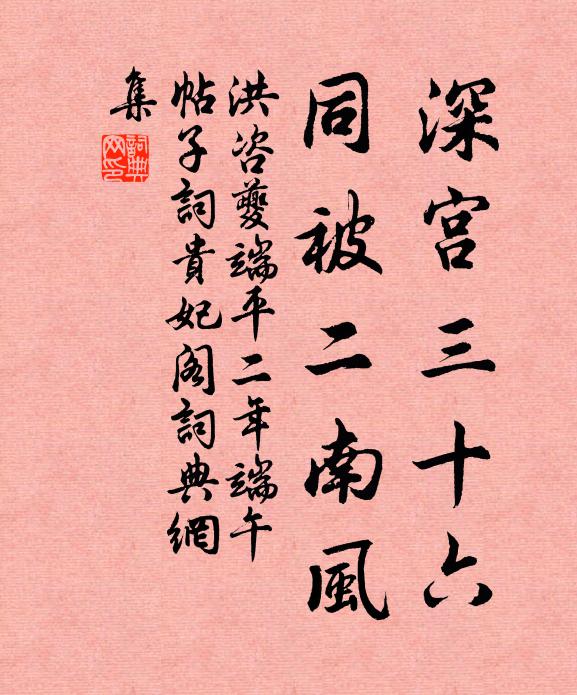 深宫三十六
同被二南風
洪咨夔端平二年端午
帖子詞貴妃阁詞典網
集
詞典網印